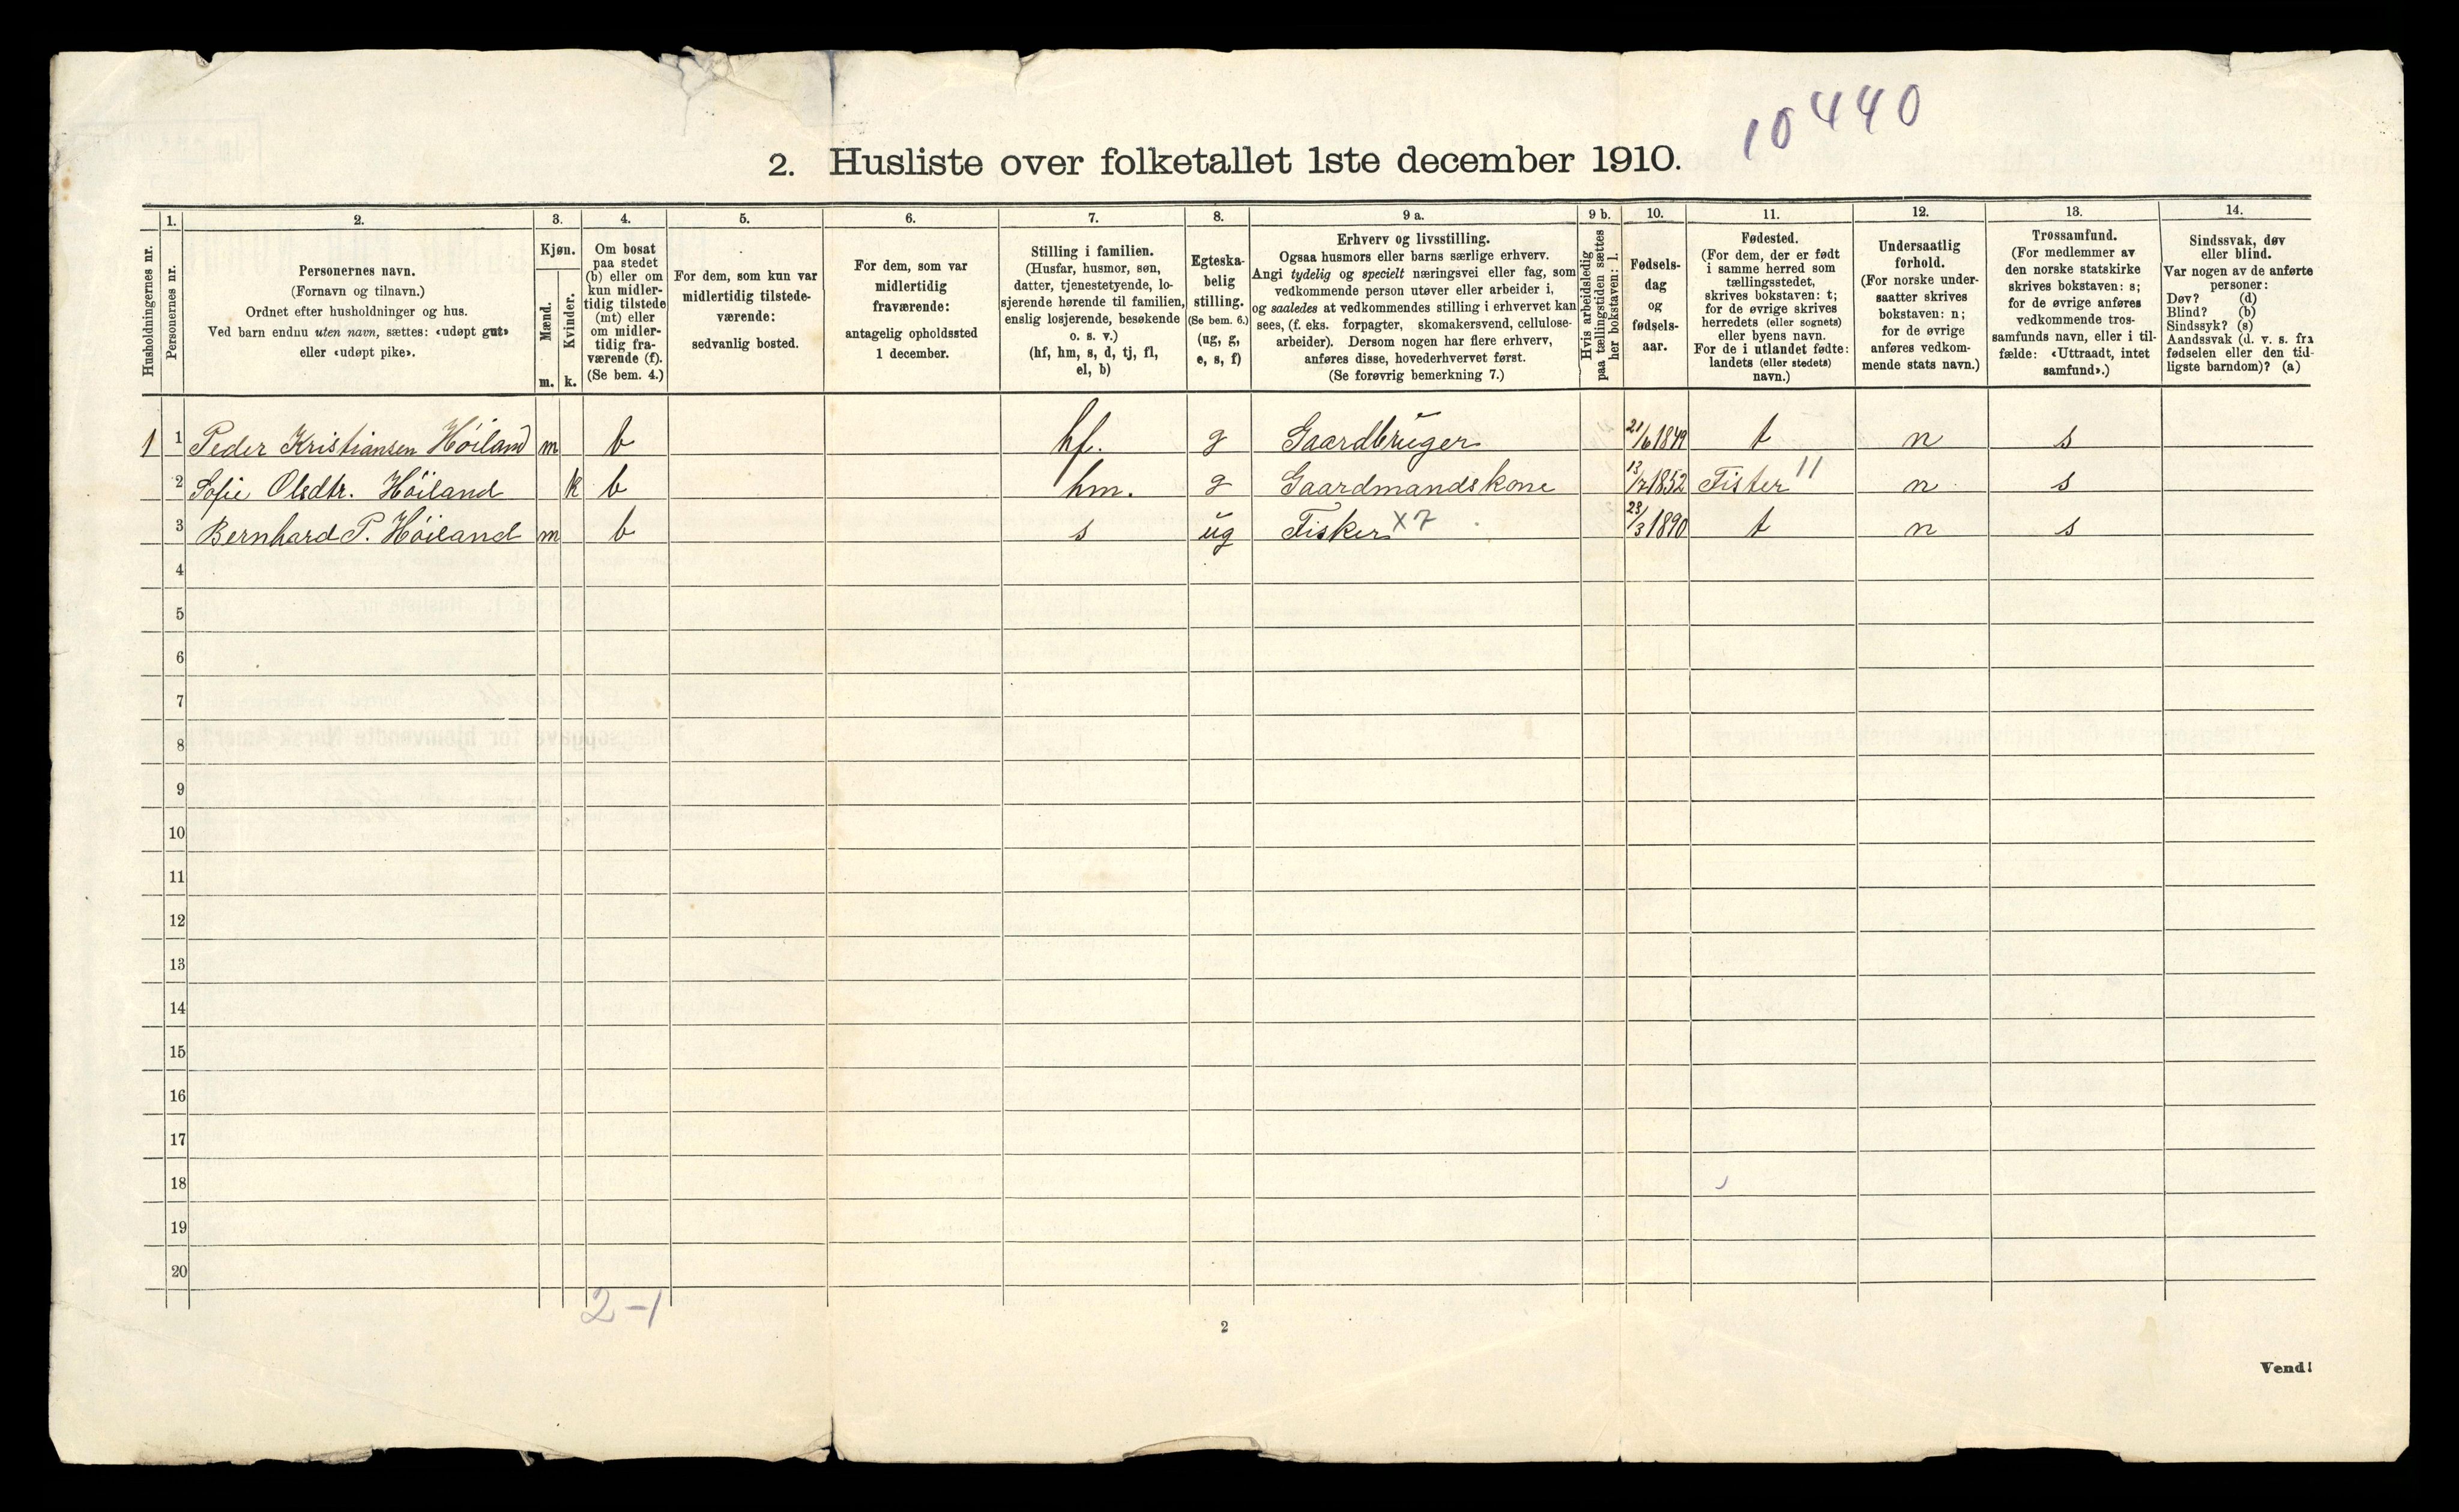 10440
2. Husliste over folketallet 1ste december 1910.
Husholdningernes nr.
1.
Personernes nr.
2.
Personernes navn.
(Fornavn og tilnavn.)
Ordnet efter husholdninger og hus.
Ved barn endnu uten navn, sættes: «udøpt gut»
eller «udøpt pike».
3.
Kjøn.
Mænd.
Kvinder.
m. k.
4.
Om bosat
paa stedet
(b) eller om
kun midler-
tidig tilstede
(mt) eller
om midler-
tidig fra-
værende (f).
(Se bem. 4.)
5.
For dem, som kun var
midlertidig tilstede-
værende:
sedvanlig bosted.
6.
For dem, som var
midlertidig
fraværende:
antagelig opholdssted
1 december.
7.
Stilling i familien.
(Husfar, husmor, søn,
datter, tjenestetyende, lo-
sjerende hørende til familien,
enslig losjerende, besøkende
o. s. v.)
(hf, hm, s, d, tj, fl,
el, b)
8.
Egteska-
belig
stilling.
(Se bem. 6.)
(ug, g,
e, s, f)
9 a.
Erhverv og livsstilling.
Ogsaa husmors eller barns særlige erhverv.
Angi tydelig og specielt næringsvei eller fag, som
vedkommende person utøver eller arbeider i,
og saaledes at vedkommendes stilling i erhvervet kan
sees, (f. eks. forpagter, skomakersvend, cellulose-
arbeider). Dersom nogen har flere erhverv,
anføres disse, hovederhvervet først.
(Se forøvrig bemerkning 7.)
9 b.
Hvis arbeidsledig
paa tællingstiden sættes
her bokstaven: l.
10.
Fødsels-
dag
og
fødsels-
aar.
11.
Fødested.
(For dem, der er født
i samme herred som
tællingsstedet,
skrives bokstaven: t;
for de øvrige skrives
herredets (eller sognets)
eller byens navn.
For de i utlandet fødte:
landets (eller stedets)
navn.)
12.
Undersaatlig
forhold.
(For norske under-
saatter skrives
bokstaven: n;
for de øvrige
anføres vedkom-
mende stats navn.)
13.
Trossamfund.
(For medlemmer av
den norske statskirke
skrives bokstaven: s;
for de øvrige anføres
vedkommende tros-
samfunds navn, eller i til-
fælde: «Uttraadt, intet
samfund».)
14.
Sindssvak, døv
eller blind.
Var nogen av de anførte
personer:
Døv? (d)
Blind? (b)
Sindssyk? (s)
Aandssvak (d. v. s. fra
fødselen eller den tid-
ligste barndom)? (a)
1 1 Peder Kristiansen Höiland m b hf. g Gaardbruger 21/6 1849 t n s
2 Sofie Olsdtr. Höiland k b hm. g Gaardmandskone 13/7 1852 Fister 11 n s
3 Bernhard P. Höiland m b s ug Fisker x7 23/3 1890 t n s
4
5
6
7
8
9
10
11
12
13
14
15
16
17
18
19
20
2-1
2
Vend!